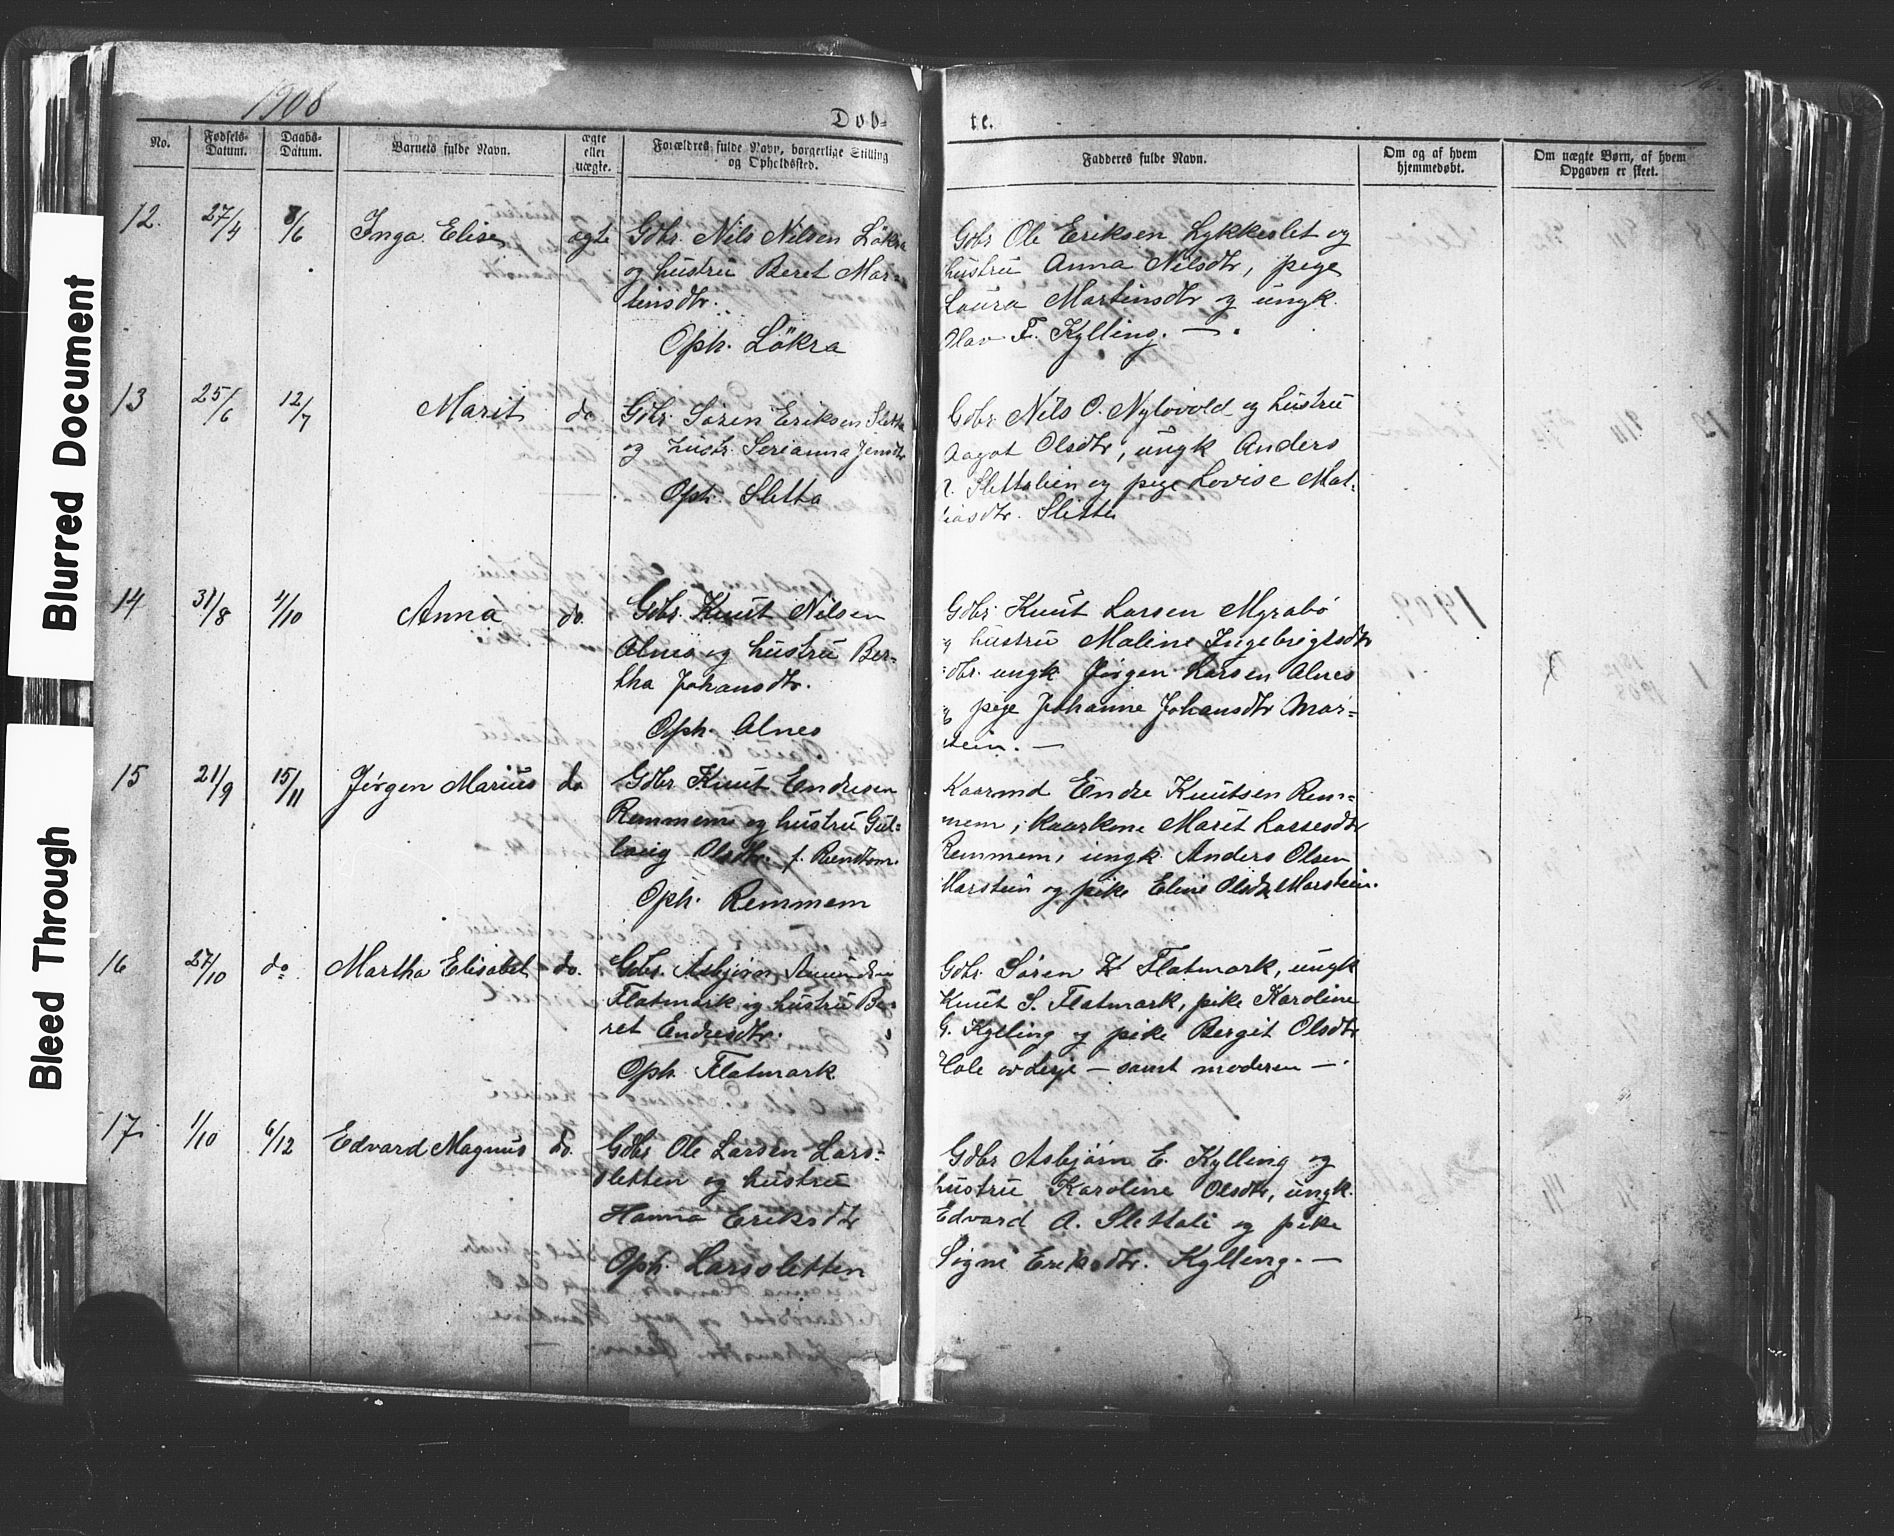 Blurred Document
Bleed Through
1908
Døb-
te.
No.
Fødsels-Datum.
Daabs-Datum.
Barnets fulde Navn.
ægte eller uægte.
Forældres fulde Navn, borgerlige Stilling og Opholdssted.
Fadderes fulde Navn.
Om og af hvem hjemmedøbt.
Om uægte Børn, af hvem Opgaven er skeet.
12. 27/4 8/6 Inga Elise ægte
Gdbr. Nils Nilsen Løkra
og hustru Beret Mar-
tinsdtr.
Oph. Løkra
Gdbr Ole Eriksen Lykkeslet og
hustru Anna Nilsdtr, pige
Laura Martinsdtr og ungk.
Olav F. Kylling. —
13 25/6 12/7 Marit do
Gdbr. Søren Eriksen Sletta
og hustr. Serianna Jensdtr
Oph. Sletta
Gdbr. Nils O. Nylovold og hustru
Aagot Olsdtr, ungk Anders
Slettalien og pige Lovise Mat-
iasdtr. Sletta
14 31/8 4/10 Anna do.
Gdbr. Knut Nilsen
Alnes og hustru Ber-
tha Johansdtr.
Oph. Alnes
Gdbr. Knut Larsen Myrabø
og hustru Maline Ingebrigtsdtr
ungk Jørgen Larsen Alnes
og pige Johanne Johansdtr Mar-
stein. —
1909.
15 21/9 15/11 Jørgen Marius do
Gdbr Knut Endresen
Remmem og hustru Gul-
laug Olsdtr.
Oph. Remmem
Kaarmd Endre Knutsen Rem-
mem, kaarkone Marit Larsesdtr
Remmem, ungk Anders Olsen
Marstein og pike Eline Olsdtr Marstein.
16 27/10 do Martha Elisabet do.
Gdbr. Asbjørn Amundsen
Flatmark og hustru Be-
ret Endresdtr.
Oph. Flatmark
Gdbr. Søren K Flatmark, ungk
Knut S. Flatmark, pike Karoline
G. Kylling og pike Bergit Olsdtr
Hole av Lesje — samt moderen —
17 1/10 6/12 Edvard Magnus do.
Gdbr Ole Larsen Lars-
sletten og hustru
Hanna Eriksdtr
Oph. Larssletten
Gdbr Asbjørn E. Kylling og
hustru Karoline Olsdtr, ungk.
Edvard A. Slettali og pike
Signe Eriksdtr. Kylling. —